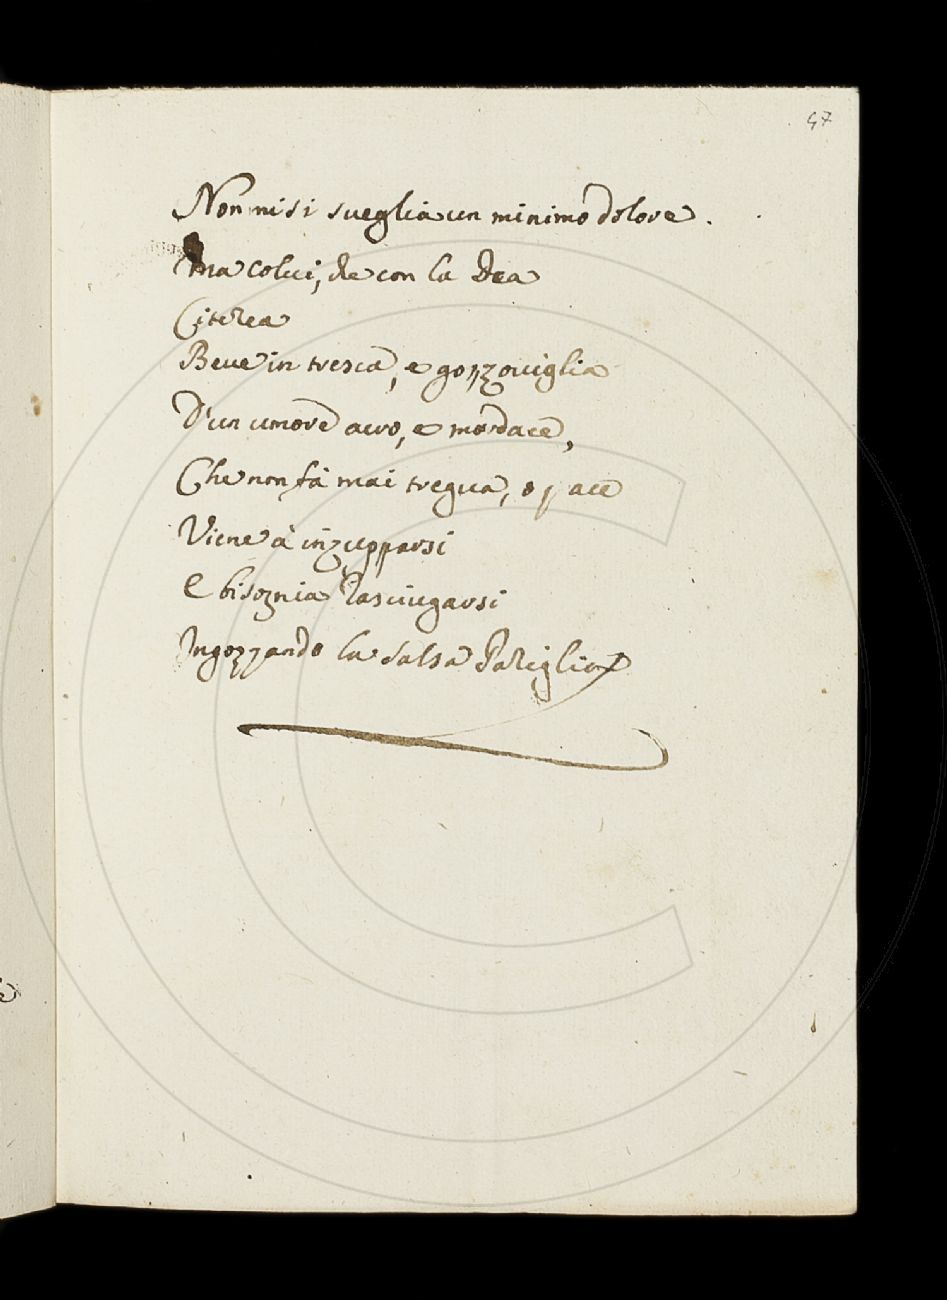 47
Non mi si sveglia un minimo dolore.
Ma colui, che con la Dea
Citerea
Beve in tresca, e gozzoviglia
D'un umore acro, e mordace,
Che non fà mai tregua, o pace
Viene à inzupparsi
E bisognia l'asciugarsi
Ingozzando la Salsa Pariglia